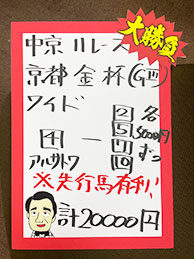 大勝負
中京11レース
京都金杯(GⅢ)
ワイド
2 各
5 5000円
田 ー 7 ずつ
アルサトワ 10
※先行馬有利!
計20000円